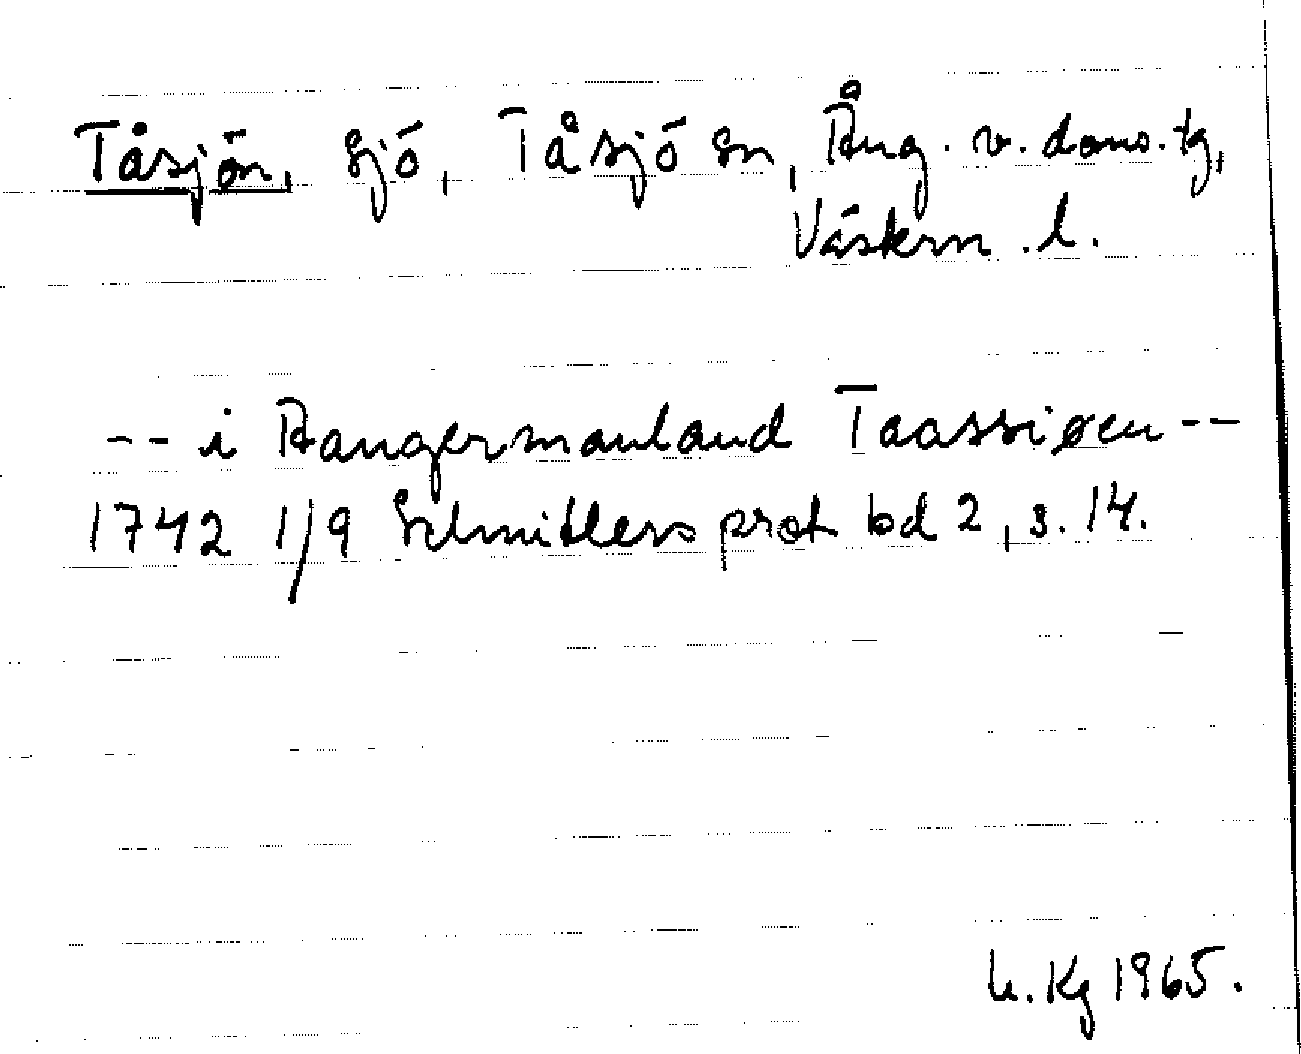 Tåsjön, sjö, Tåsjö sn, Ång. v. doms.tg,
Väskrn. l.
-- i Aangermanland Taassiøen --
1742 1/9 Schnitlers prot bd 2, s. 14.
U. Kg 1965.